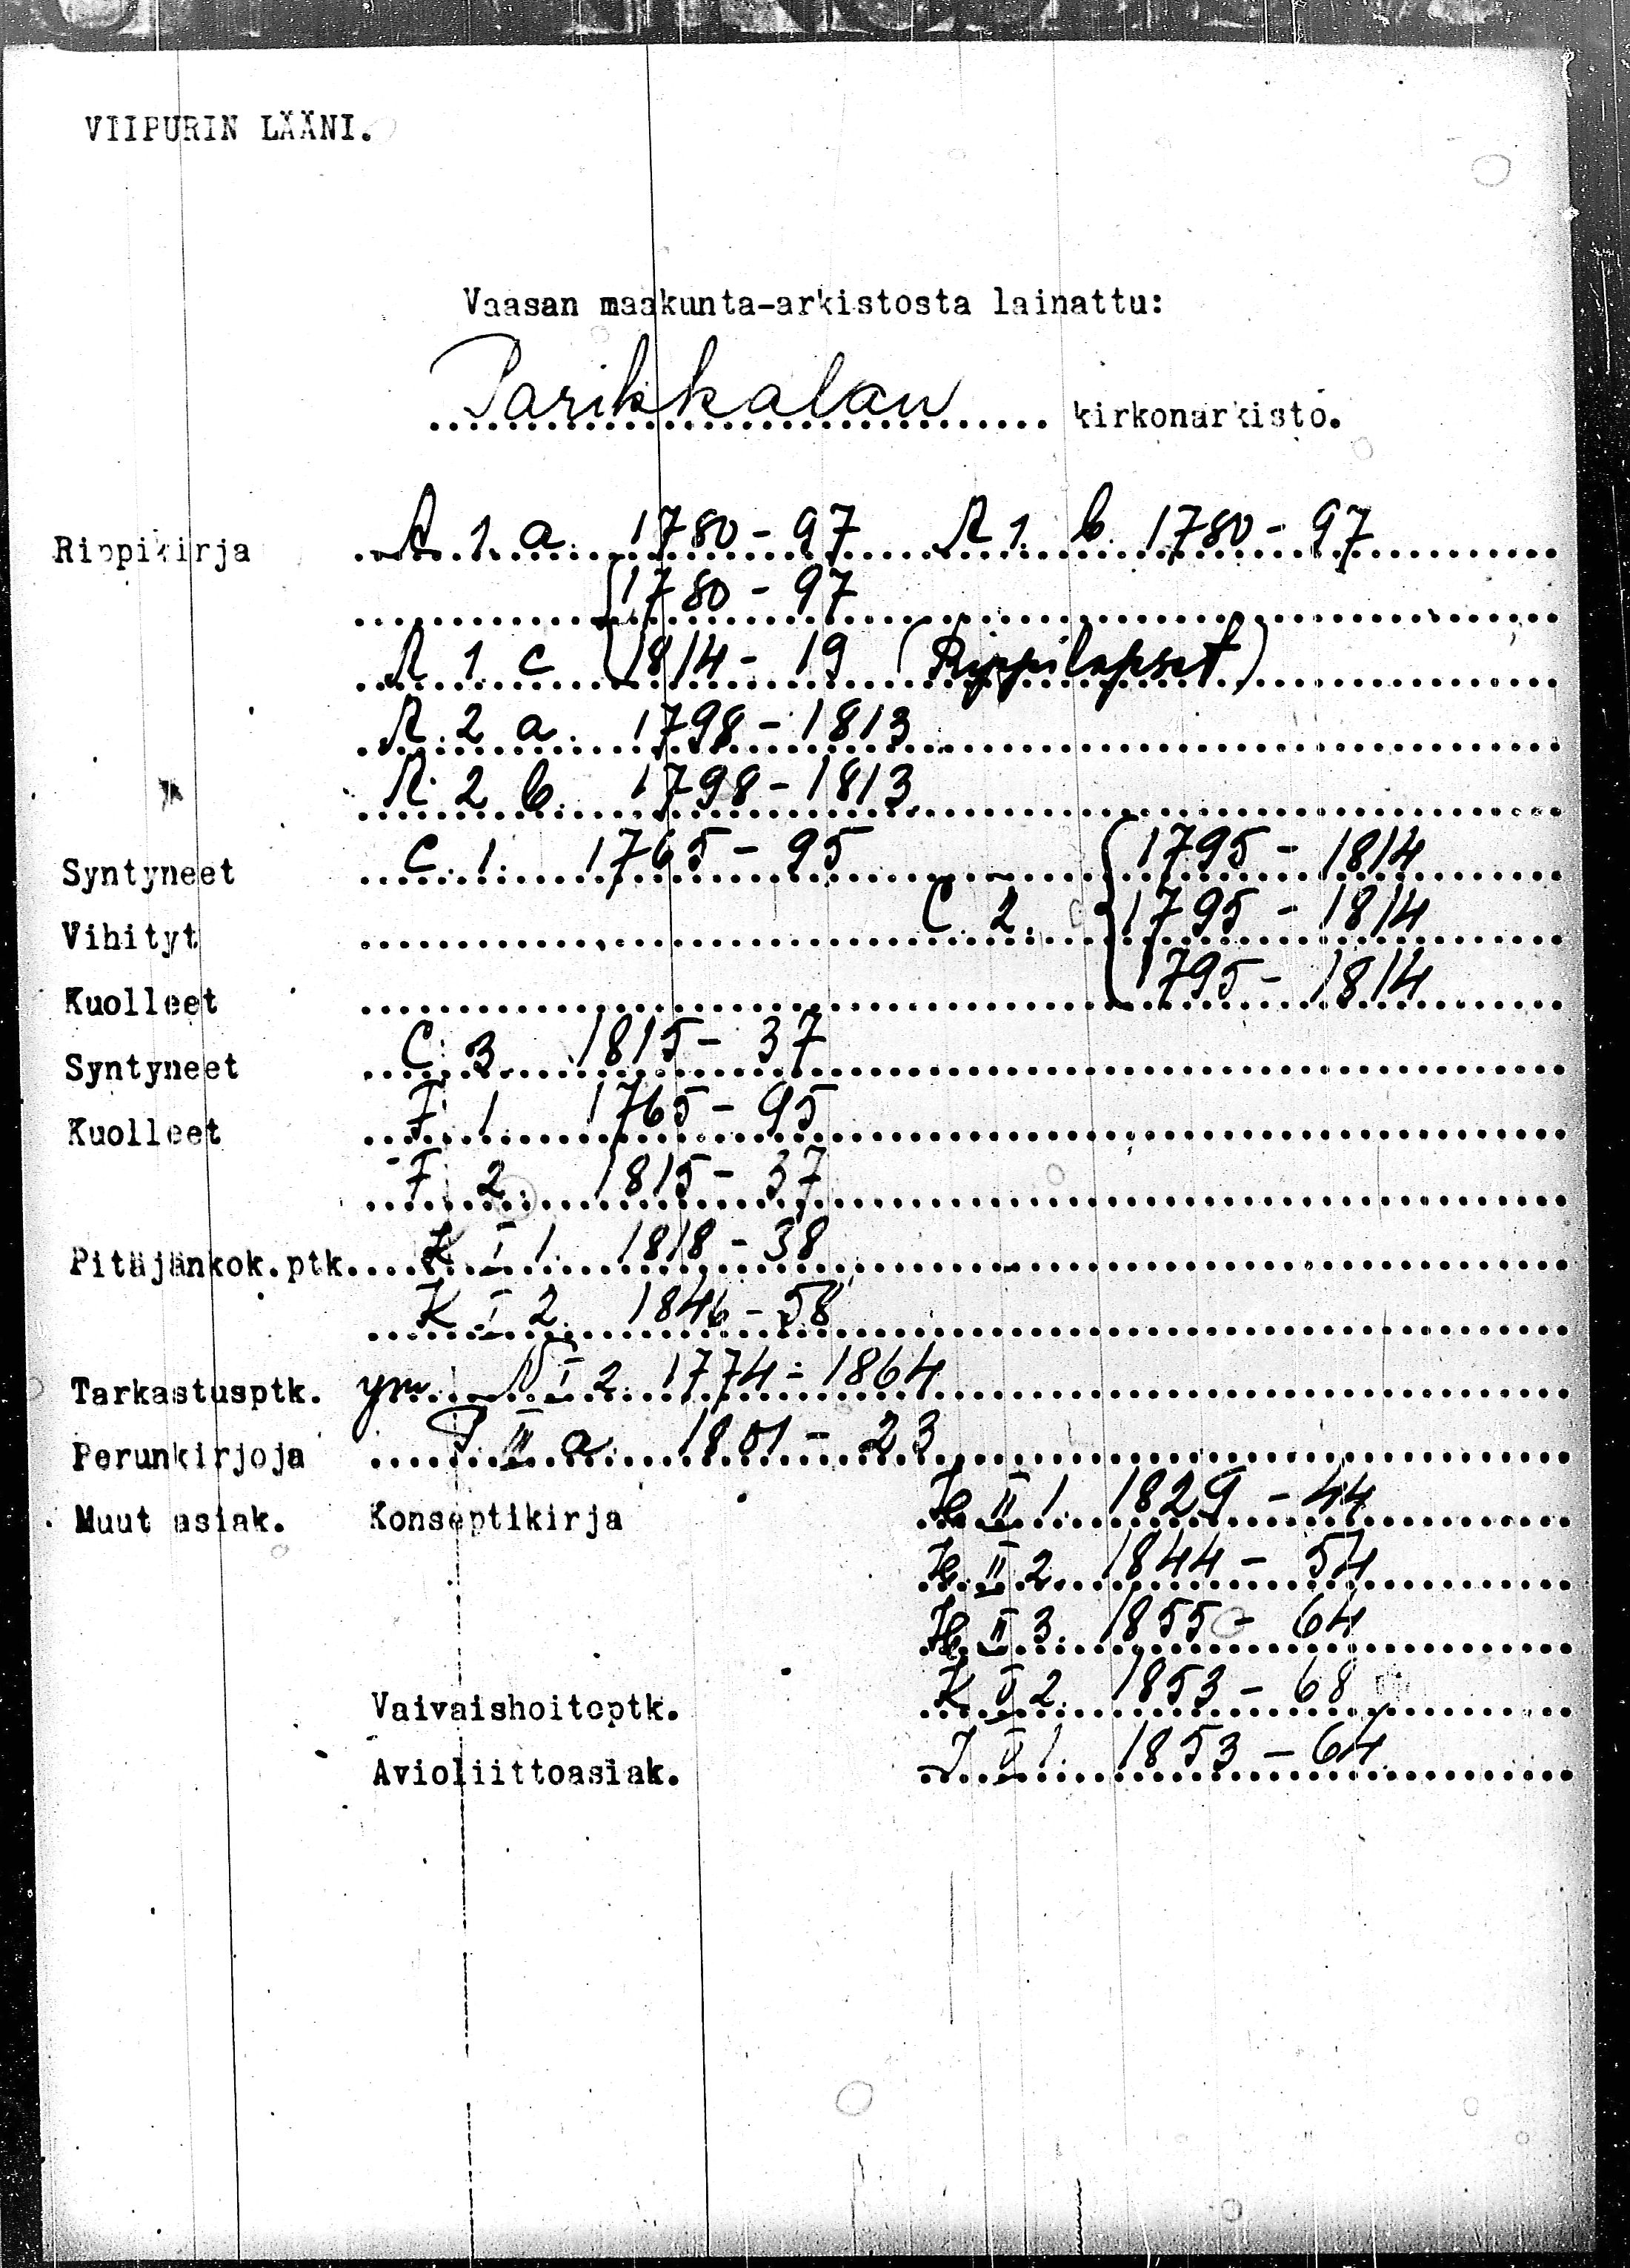 VIIPURIN LÄÄNI.
Vaasan maakunta-arkistosta lainattu:
Parikkalan kirkonarkisto.
Rippikirja A 1 a. 1780-97 A 1. b. 1780-97
1780-97
A 1 c 1814-19 (Rippilapset)
A. 2 a. 1798-1813
A. 2 b. 1798-1813
Syntyneet C. 1. 1765-95 1795-1814
Vihityt C. 2. 1795-1814
Kuolleet 1795-1814
Syntyneet C. 3 1815-37
Kuolleet F. 1. 1765-95
F. 2. 1815-37
Pitäjänkok.ptk. K I 1. 1818-38
K I 2. 1846-58
Tarkastusptk. ym. N I 2. 1774-1864
Perunkirjoja P. II a. 1801-23
Muut asiak. Konseptikirja H II 1. 1829-44
H. II 2. 1844-54
H II 3. 1855-64
Vaivaishoitoptk. K II 2. 1853-68
Avioliittoasiak. J II 1. 1853-64